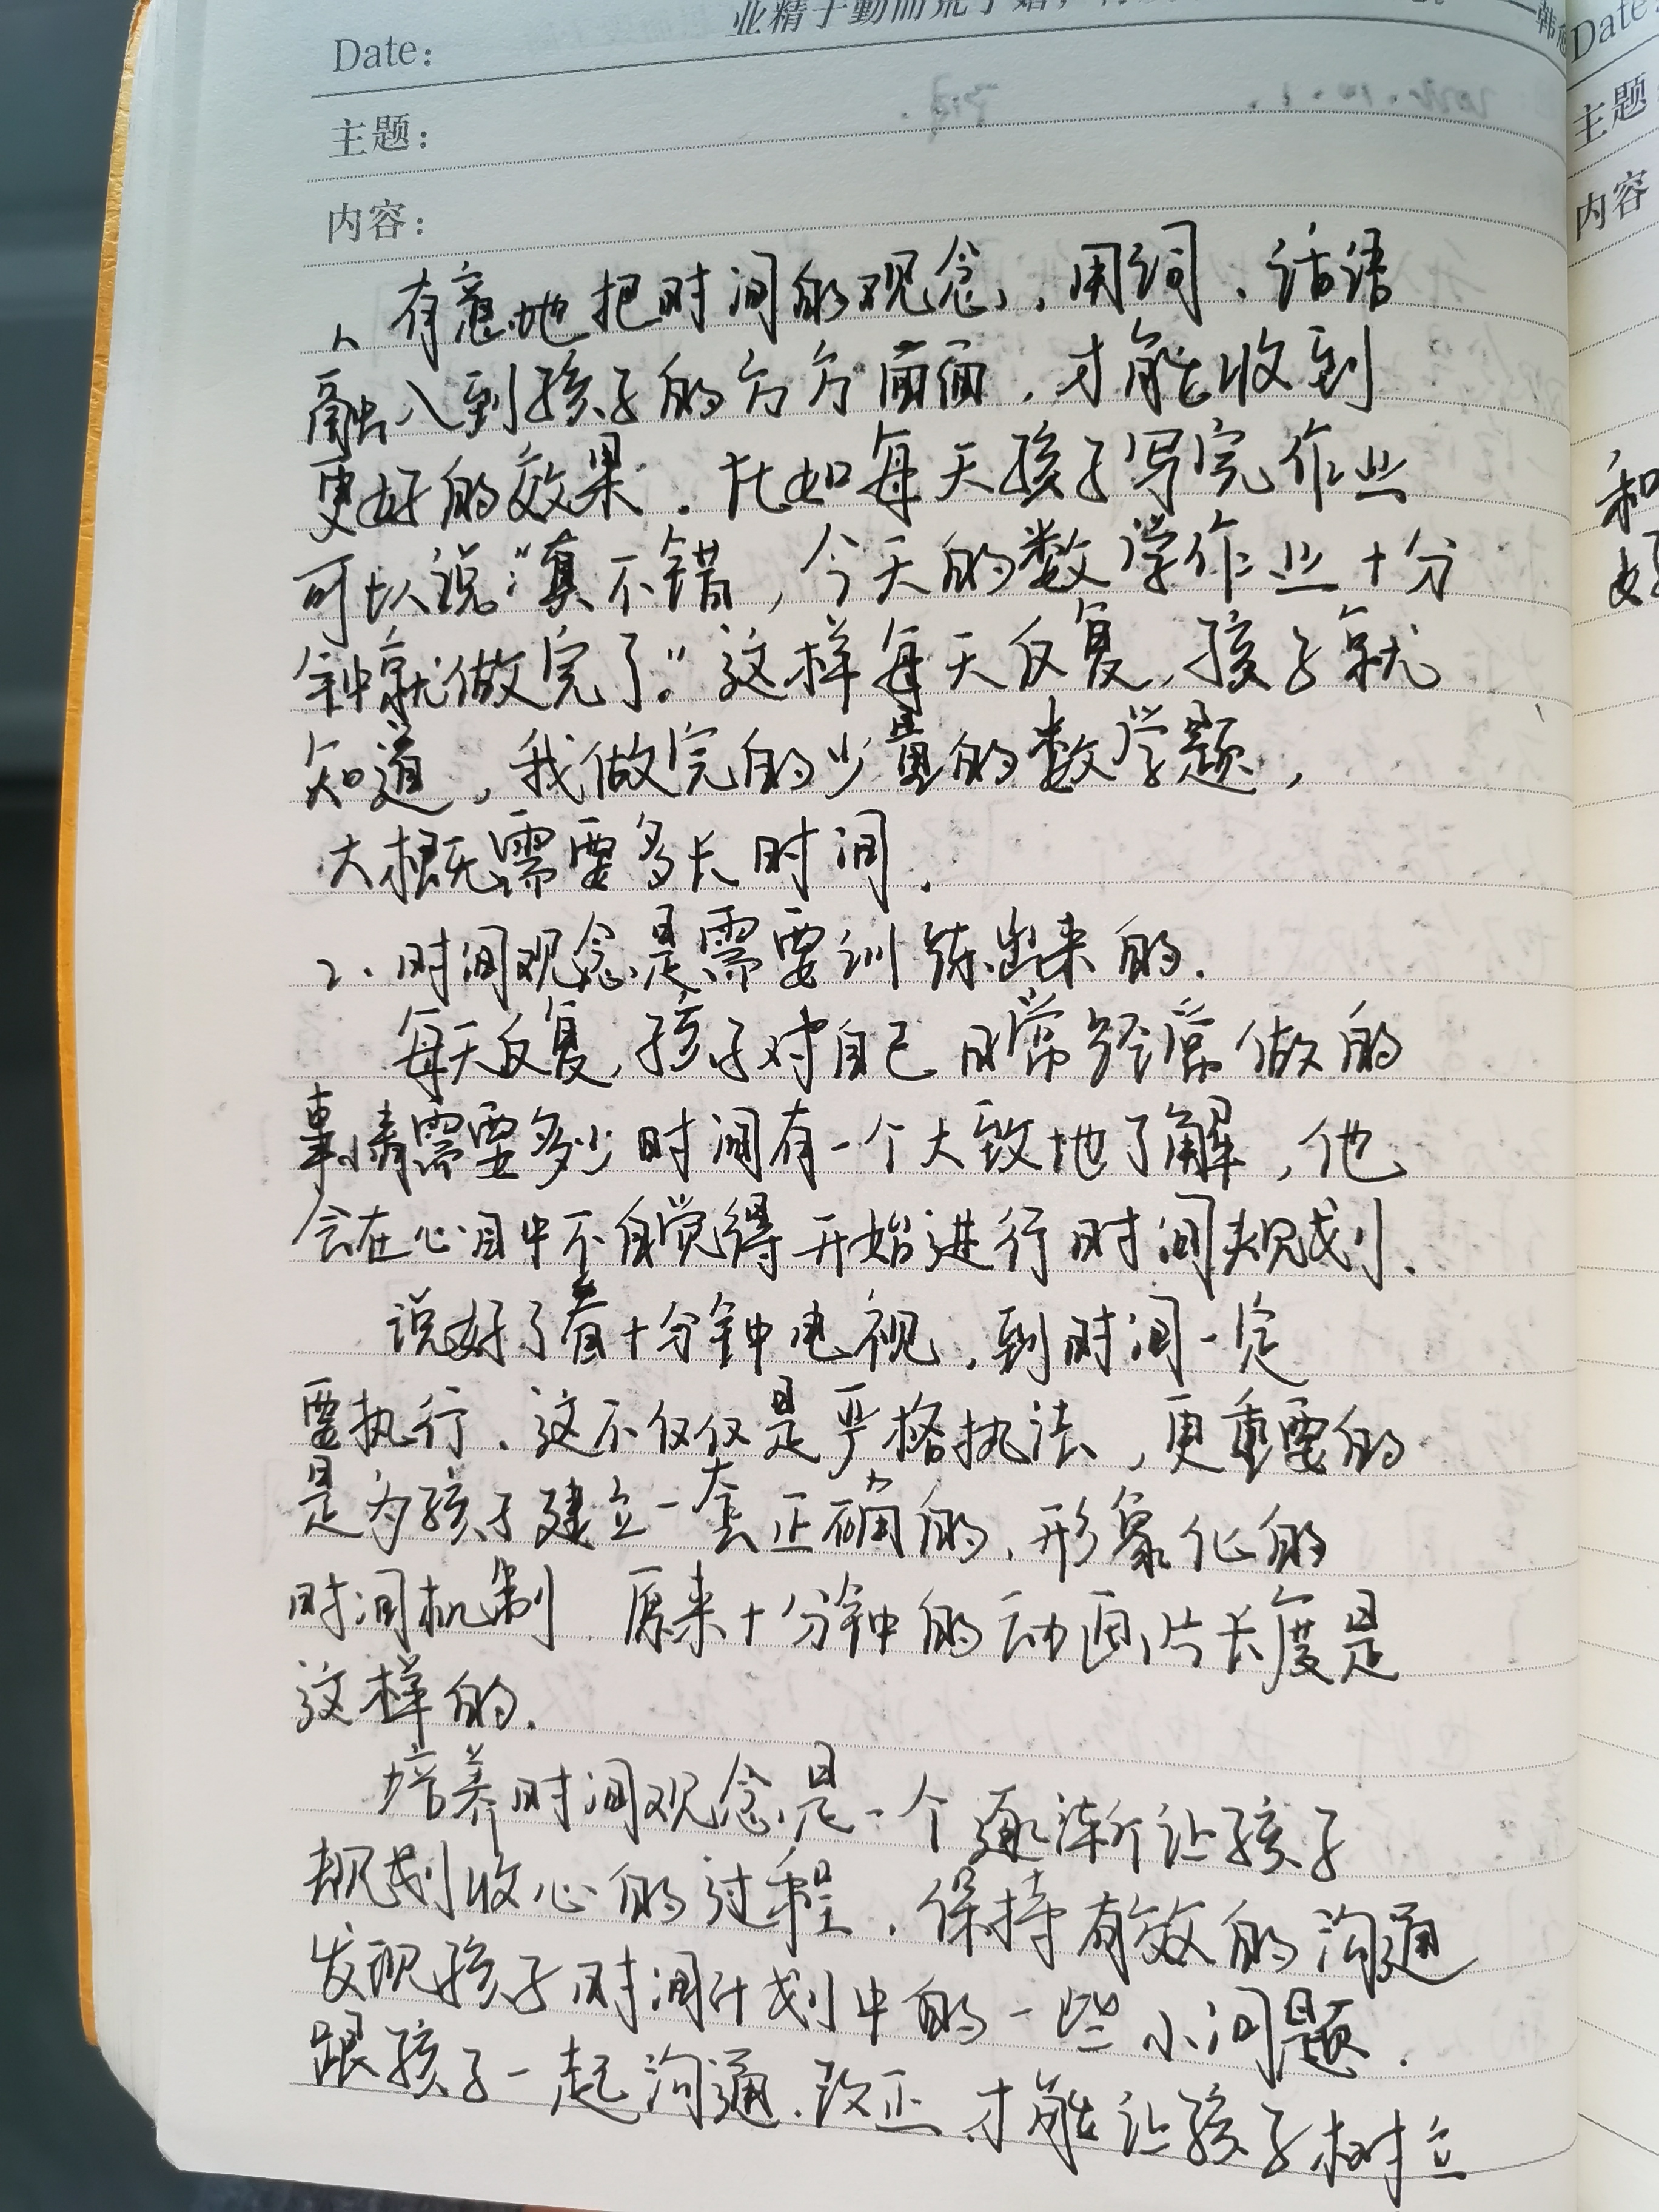 业精于勤而荒于嬉，
Date:
主题:
内容:
1、有意地把时间的观念、用词、话语
融入到孩子的方方面面，才能收到
更好的效果．比如每天孩子写完作业
可以说："真不错，今天的数学作业十分
钟就做完了。"这样每天反复，孩子就
知道，我做完的少量的数学题，
大概需要多长时间．
2、时间观念是需要训练出来的．
每天反复，孩子对自己日常经常做的
事情需要多少时间有一个大致地了解，他
会在心目中不自觉得开始进行时间规划．
说好了看十分钟电视，到时间一定
要执行．这不仅仅是严格执法，更重要的
是为孩子建立一套正确的、形象化的
时间机制 原来十分钟的动画片长度是
这样的．
培养时间观念是一个逐渐让孩子
规划收心的过程．保持有效的沟通
发现孩子时间计划中的一些小问题．
跟孩子一起沟通．改正 才能让孩子树立
韩愈
Date:
主题
内容
和
好